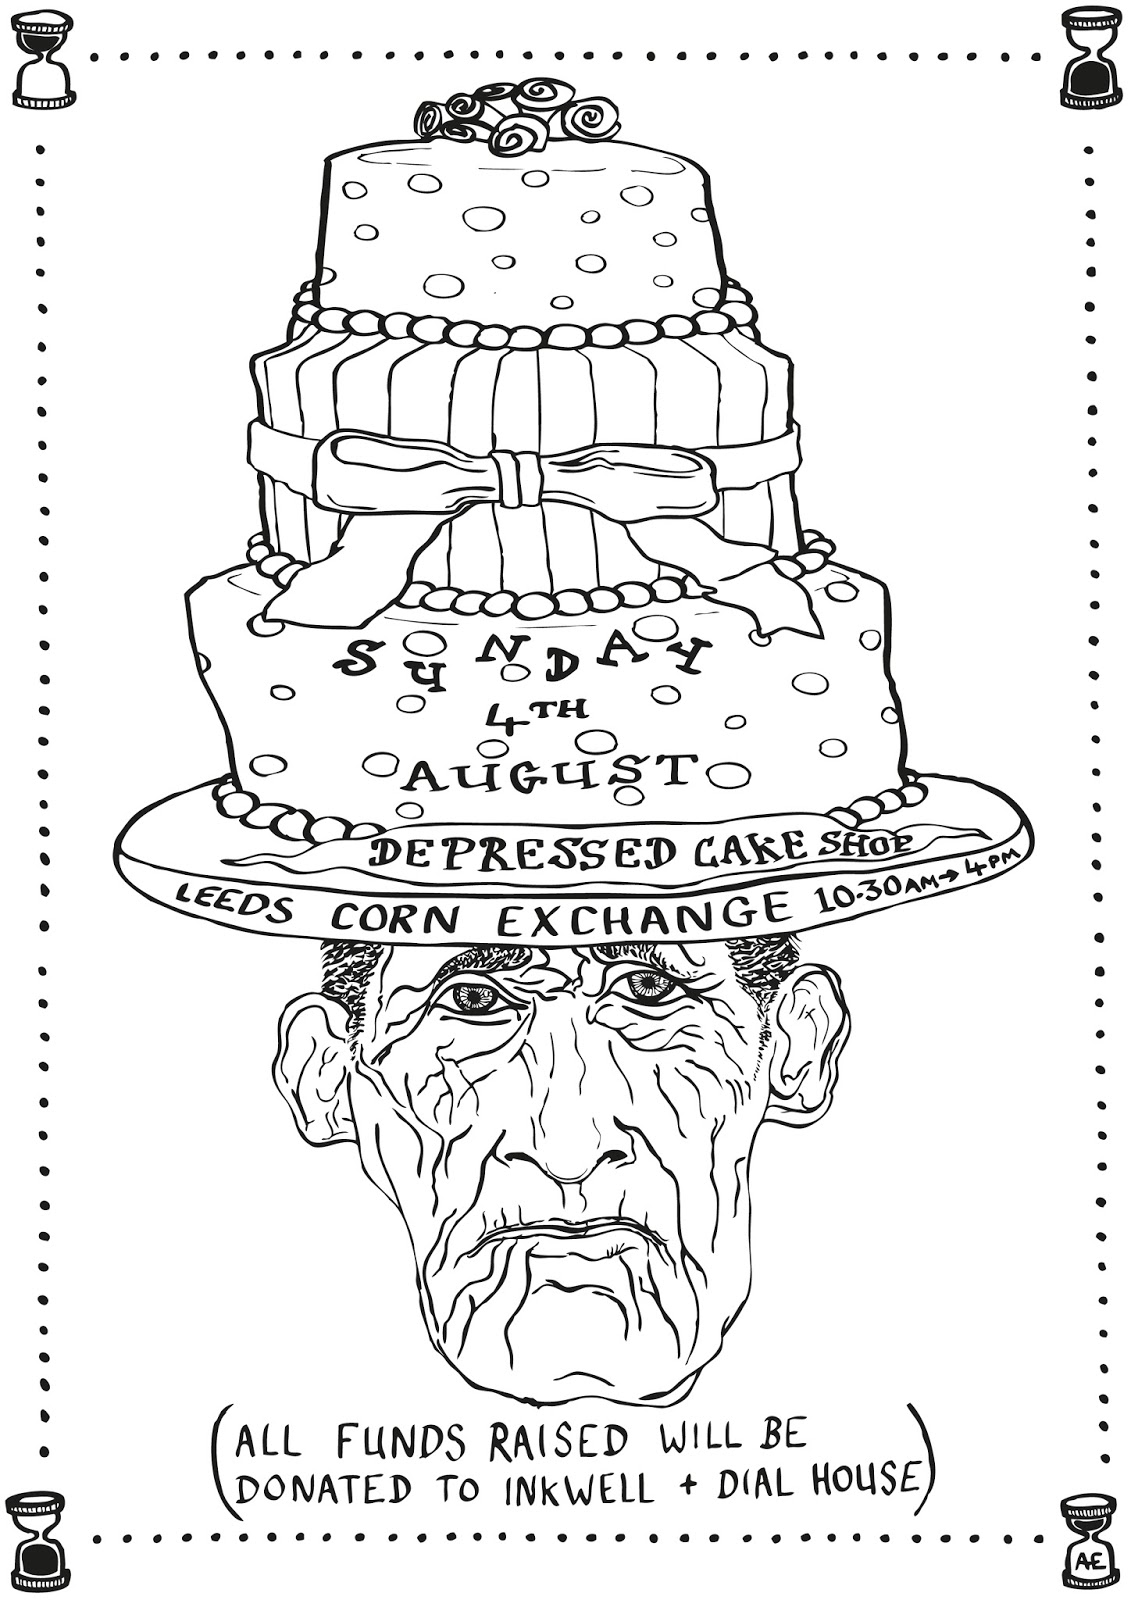 SUNDAY
4TH
AUGUST
DEPRESSED CAKE SHOP
LEEDS CORN EXCHANGE 10.30AM→4PM
(ALL FUNDS RAISED WILL BE
DONATED TO INKWELL + DIAL HOUSE)
AE